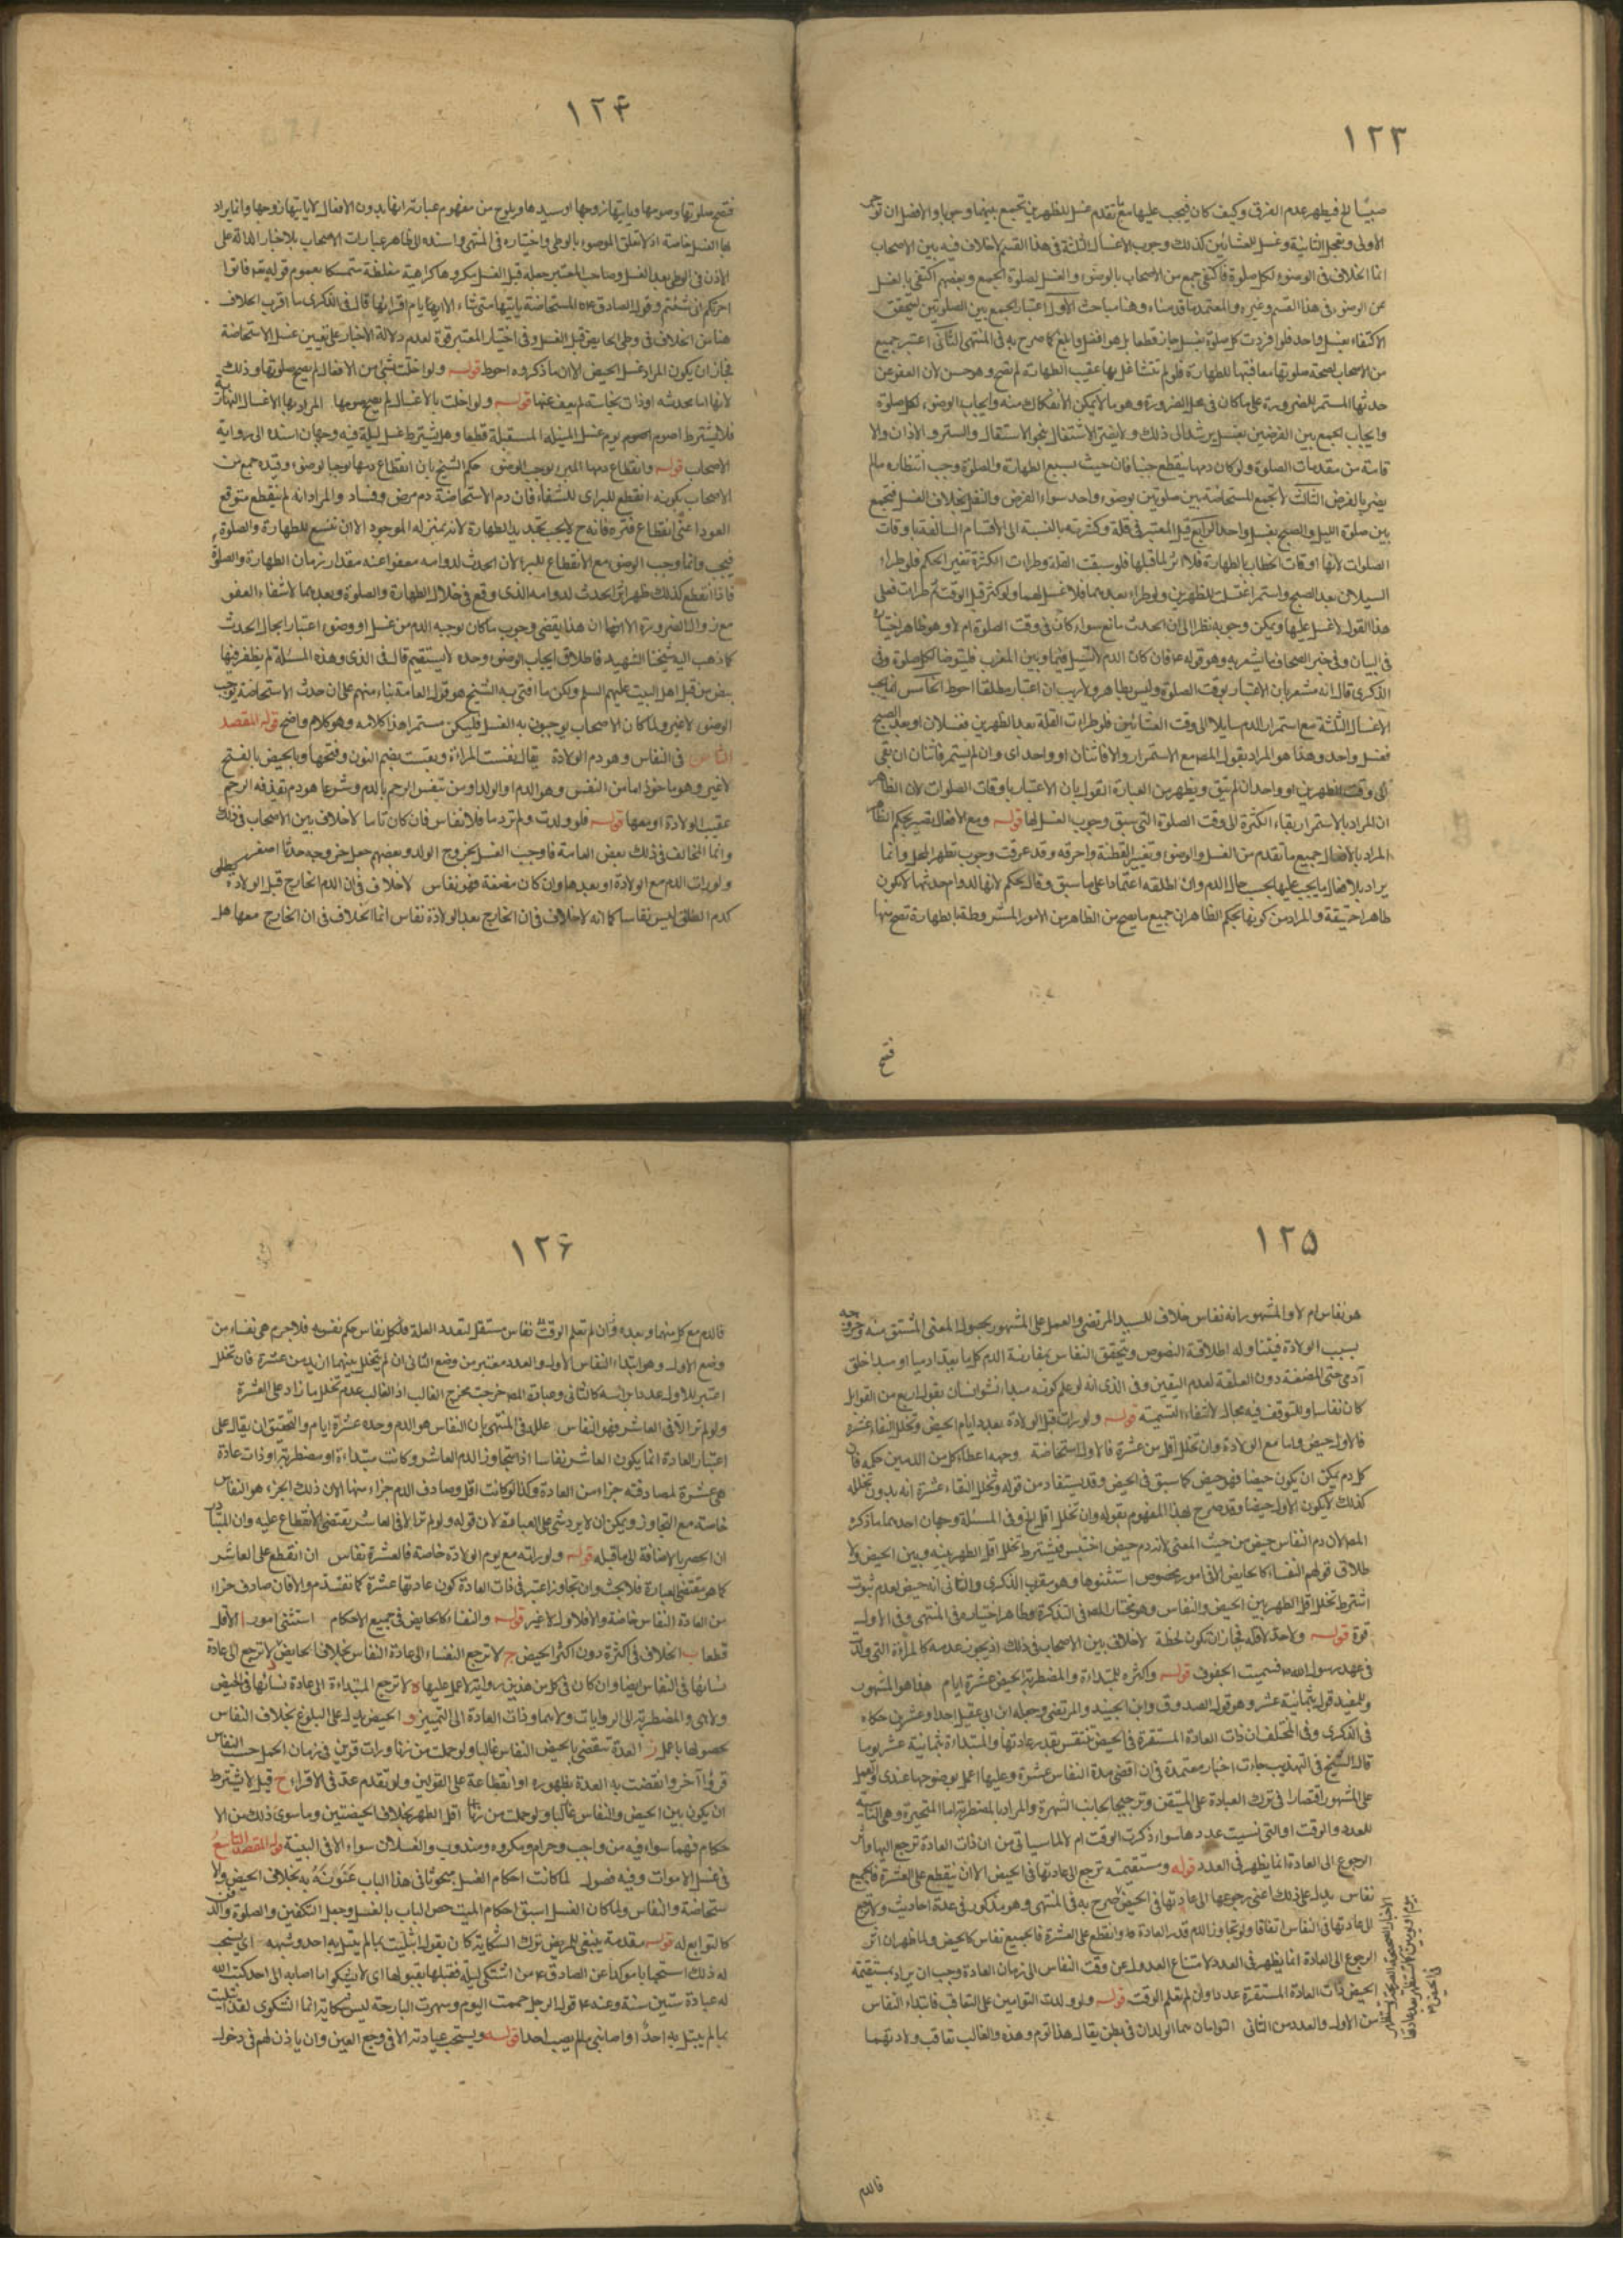 ١٢٣
صبيًا الخ فيظهر عدم الفرق وكيف كان فيجب عليها مع ما تقدم غسل للظهرين تجمع بينهما وجوبا والافضل ان توخر
الأولى وتعجل الثانية وغسل للعشائين كذلك ووجوب الاغسال الثلثة في هذا القسم لاخلاف فيه بين الاصحاب
انما الخلاف في الوضوء لكل صلوة فاكتفى جمع من الاصحاب بالوضوء والغسل لصلوة الجمع وبعضهم اكتفى بالغسل
عن الوضوء في هذا القسم وغيره والمعتمد ما قدمناه وهنا مباحث الأول اعتبار الجمع بين الصلوتين ليتحقق
الاكتفاء بغسل واحد فلو افردت كل صلوة بغسل جاز قطعا بل هو افضل وابلغ كما صرح به في المنتهى الثاني اعتبر جميع
من الاصحاب لصحة صلوتها معاقبتها للطهارة فلو لم تتشاغل بها عقيب الطهارة لم تصح وهو حسن لأن العفو عن
حدثها المستمر للضرورة على ما كان في محل الضرورة وهو ما لا يمكن الانفكاك منه وايجاب الوضوء لكل صلوة
وايجاب الجمع بين الفرضين بغسل يرشد الى ذلك ولا يضر الاشتغال بنحو الاستقبال والستر والاذان والا
قامة من مقدمات الصلوة ولو كان دمها ينقطع حينا فان حيث يسع الطهارة والصلوة وجب انتظاره مالم
يضر بالفرض الثالث لا تجمع المستحاضة بين صلوتين بوضوء واحد سواء الفرض والنفل بخلاف الغسل فتجمع
بين صلوة الليل والصبح بغسل واحد الرابع قيل المعتبر في قلة وكثرته بالنسبة الى الأقسام السالفة باوقات
الصلوات لأنها اوقات الخطاب بالطهارة فلا اثر لما قبلها فلو سبقت القلة وطرات الكثرة تغير الحكم فلو طراء
السيلان بعد الصبح واستمر اغتسلت للظهرين ولو طراء بعدهما فلا غسل لهما ولو كثر قبل الوقت ثم طرات فعلى
هذا القول لا غسل عليها ويمكن وجوبه نظرا الى ان الحدث مانع سواء كان في وقت الصلوة ام لا وهو ظاهر اختياره
في البيان وفي خبر الصحاف ما يشعر به وهو قوله ع فان كان الدم لا يسيل فيما بين المغرب فلتتوضا لكل صلوة وفي
الذكرى قال انه مشعر بان الاعتبار بوقت الصلوة وليس بظاهر ولا ريب ان اعتباره مطلقا احوط الخامس انما يجب
الاغسال الثلثة مع استمرار الدم سايلا الى وقت العشائين فلو طرات القلة بعد الظهرين فغسلان او بعد الصبح
فغسل واحد وهذا هو المراد بقول المصـ مع الاستمرار والا فاثنان او واحد اى وان لم يستمر فاثنان ان بقي
الى وقت الظهرين او واحد ان لم تبق ويظهر من العبارة القول بان الاعتبار باوقات الصلوات لان الظاهر
ان المراد بالاستمرار بقاء الكثرة الى وقت الصلوة التي سبق وجوب الغسل لها قوله ومع الأفعال تصير بحكم الطاهر
المراد بالافعال جميع ما تقدم من الغسل والوضوء وتغيير القطنة والخرقة وقد عرفت وجوب تطهر المحل وانما
يراد بالافعال ما يجب عليها بحسب حال الدم وان اطلقه اعتمادا على ما سبق وقال بحكم لأنها لدوام حدثها لا تكون
طاهرا حقيقة والمراد من كونها بحكم الطاهر ان جميع ما يصح من الطاهر من الامور المشروطة بالطهارة تصح منها
فتصح
١٢٤
فتصح صلوتها وصومها وياتيها زوجها او سيدها ويلوح من مفهوم عبارته انها بدون الافعال لا ياتيها زوجها وانما يراد
بها الغسل خاصة اذ لا تعلق للوضوء بالوطى واختياره في المنتهى واسنده الى ظاهر عبارات الاصحاب بالاخبار الدالة على
الاذن في الوطى بعد الغسل وصاحب المعتبر جعله قبل الغسل مكروها كراهية مغلظة متمسكا بعموم قوله تعـ فاتوا
حرثكم انى شئتم وقول الصادق ع المستحاضة ياتيها متى شاء الا ايام اقرائها قال في الذكرى ما اقرب الخلاف
هنا من الخلاف في وطى الحايض قبل الغسل وفي اختيار المعتبر قوة لعدم دلالة الاخبار على تعيين غسل الاستحاضة
فجاز ان يكون المراد غسل الحيض الا ان ما ذكروه احوط قوله ولو اخلت بشئ من الافعال لم تصح صلوتها وذلك
لأنها اما محدثه او ذات نجاسة لم يعف عنها قوله ولو اخلت بالاغسال لم يصح صومها المراد بها الاغسال النهارية
فلا يشترط لصوم يوم غسل الليلة المستقبلة قطعا وهل يشترط غسل ليلة فيه وجهان اسنده الى رواية
الاصحاب قوله وانقطاع دمها للبرء يوجب الوضوء حكم الشيخ بان انقطاع دمها يوجب الوضوء وقيده جمع من
الاصحاب بكونه انقطع للبراى للشفاء فان دم الاستحاضة دم مرض وفساد والمراد انه لم ينقطع متوقع
العود اعنى انقطاع فترة فانه ح لا يجب تجديد الطهارة لانه بمنزله الموجود الا ان تتسع للطهارة والصلوة
فيجب وانما وجب الوضوء مع الانقطاع للبرء لأن الحدث لدوامه معفوا عنه مقدار زمان الطهارة والصلوة
فاذا انقطع كذلك ظهر اثر الحدث لدوامه الذى وقع في خلال الطهارة والصلوة وبعدهما لانتفاء العفو
مع زوال الضرورة الا ان هذا يقتضى وجوب ما كان يوجبه الدم من غسل او وضوء اعتبارا بحال الحدث
كما ذهب اليه شيخنا الشهيد فاطلاق ايجاب الوضوء وحده لا يستقيم قال في الذكرى وهذه المسئلة لم يظفر فيها
بنص من قبل اهل البيت عليهم السلم ولكن ما افتى به الشيخ هو قول العامة بناء منهم على ان حدث الاستحاضة يوجب
الوضوء لا غير ولما كان الاصحاب يوجبون به الغسل فليكن مستمرا هذا كلامه وهو كلام واضح قوله المقصد
الثامن في النفاس وهو دم الولادة يقال نفست المراءة ونفست بضم النون وفتحها وبالحيض بالفتح
لاغير وهو ماخوذ اما من النفس وهو الدم او الولد او من تنفس الرحم بالدم وشرعا هو دم يقذفه الرحم
عقيب الولادة او معها قوله فلو ولدت ولم تر دما فلا نفاس فان كان تاما لاخلاف بين الاصحاب في ذلك
وانما المخالف في ذلك بعض العامة فاوجب الغسل بخروج الولد وبعضهم جعل خروجه حدثا اصغر
ولو رات الدم مع الولادة او بعدها وان كان مضغة فهو نفاس لاخلاف في ان الدم الخارج قبل الولادة
كدم الطلق ليس نفاسا كما انه لاخلاف في ان الخارج بعد الولادة نفاس انما الخلاف في ان الخارج معها هل
١٢٥
هو نفاس ام لا والمشهور انه نفاس خلافا للسيد المرتضى والعمل على المشهور لحصول المعنى المشتق منه وخروجه
بسبب الولادة فيتناوله اطلاق النصوص ويتحقق النفاس بمقارنة الدم
آدمى حتى المضغة دون العلقة لعدم اليقين وفي الذى انه لو علم كونه مبداء نشو انسان بقول اربع من القوابل
كان نفاسا وللتوقف فيه مجال لانتفاء التسمية قوله ولو رات قبل الولادة بعدد ايام الحيض وتخلل النقاء عشرة
فالاول حيض وما مع الولادة وان تخلل اقل من عشرة فالاول استحاضة وجهه اعطاء كل من الدمين حكمه فان
كل دم يمكن ان يكون حيضا فهو حيض كما سبق في الحيض وقد يستفاد من قوله وتخلل النقاء عشرة انه بدون تخلله
كذلك لا يكون الاول حيضا وقد صرح بهذا المفهوم بقوله وان تخلل اقل الخ وفي المسئلة وجهان احدهما ما ذكره
المصـ لان دم النفاس حيض من حيث المعنى لانه دم حيض احتبس فيشترط تخلل اقل الطهر بينه وبين الحيض ولا
طلاق قولهم النفساء كالحايض الا في امور مخصوص استثنوها وهو مقرب الذكرى والثاني انه حيض لعدم ثبوت
اشتراط تخلل اقل الطهر بين الحيض والنفاس وهو مختار المصـ في التذكرة وظاهر اختياره في المنتهى وفي الاول
قوة قوله ولا حد لاقله فجاز ان تكون لحظة لاخلاف بين الاصحاب في ذلك اذ يجوز عدمه كالمراءة التي ولدت
في عهد رسول الله ص فسميت الجفوف قوله واكثره للمبتداءة والمضطربة الحيض عشرة ايام هذا هو المشهور
وللمفيد قول بثمانية عشر وهو قول الصدوق وابن الجنيد والمرتضى وجعله ابن ابى عقيل احدا وعشرين حكاه
في الذكرى وفي المختلف ان ذات العادة المستقرة في الحيض تتنفس بقدر عادتها والمبتداءة ثمانية عشر يوما
قال الشيخ في التهذيب جاءت اخبار معتمدة في ان اقصى مدة النفاس عشرة وعليها اعمل لوضوحها عندى والعمل
على المشهور اقتصارا في ترك العبادة على المتيقن وترجيحا لجانب الشهرة والمراد بالمضطربة اما المتحيرة وهى الناسية
للعدد والوقت او التي نسيت عددها سواء ذكرت الوقت ام لا لما سياتى من ان ذات العادة ترجع اليها واثر
الرجوع الى العادة انما يظهر في العدد قوله ومستقيمته ترجع الى عادتها في الحيض الا ان ينقطع على العشرة فالجميع
نفاس يدل على ذلك اعنى رجوعها الى عادتها في الحيض صرح به في المنتهى وهو مذكور في عدة احاديث ولا ترجع
الى عادتها في النفاس اتفاقا ولو تجاوز الدم قدر العادة وانقطع على العشرة فالجميع نفاس كالحيض ولما ظهر ان اثر
الرجوع الى العادة انما يظهر في العدد لامتناع العدول عن وقت النفاس الى زمان العادة وجب ان يراد بمستقيمة
الحيض ذات العادة المستقرة عددا وان لم تعلم الوقت قوله ولو ولدت التوامين على التعاقب فابتداء النفاس
من الاول والعدد من الثاني التوامان هما الولدان في بطن يقال هذا توم وهذه والغالب تعاقب ولادتهما
فالدم
١٢۶
فالدم مع كل منهما وبعده وان لم تعلم الوقت نفاس مستقل لتعدد العلة فلكل نفاس حكم نفسه فلا جرم هى نفساء من
وضع الاول وهو ابتداء النفاس الاول والعدد معتبر من وضع الثاني ان لم يتخلل بينهما ازيد من عشرة فان تخلل
اعتبر للاول عدد براسه كالثاني وعبارة المصـ خرجت مخرج الغالب اذ الغالب عدم تخلل ما زاد على العشرة
ولو لم تر الا في العاشر فهو النفاس علله في المنتهى بان النفاس هو الدم وحده عشرة ايام والتحقيق ان يقال على
اعتبار العادة انما يكون العاشر نفاسا اذا تجاوز الدم العاشر وكانت مبتداءة او مضطربة او ذات عادة
هى عشرة لمصادفته جزاء من العادة وكذا لو كانت اقل وصادف الدم جزاء منها الا ان ذلك الجزء هو النفاس
خاصته مع التجاوز ويمكن ان لا يرد شئ على العبارة لان قوله ولو لم تر الا في العاشر يقتضى الانقطاع عليه وان المتبادر
ان الحصر بالاضافة الى ما قبله قوله ولو راته مع يوم الولادة خاصة فالعشرة نفاس ان انقطع على العاشر
كما هو مقتضى العبارة فلا بحث وان تجاوز اعتبر في ذات العادة كون عادتها عشرة كما تقدم والا فان صادف جزاء
من العادة النفاس خاصة والا فالاول لاغير قوله والنفساء كالحايض في جميع الاحكام استثنى امور ا الأقل
قطعا ب الخلاف في اكثره دون اكثر الحيض ج لا ترجع النفساء الى عادة النفاس بخلاف الحايض د لا ترجع الى عادة
نسائها في النفاس ايضا وان كان في كل من هذين رواية لا عمل عليها ه لا ترجع المبتداءة الى عادة نسائها في الحيض
ولا هى والمضطربة الى الروايات ولا هما وذات العادة الى التمييز و الحيض يدل على البلوغ بخلاف النفاس
لحصولها بالحمل ز العدة تنقضى بالحيض النفاس غالبا ولو حملت من زنا ورات قرئين في زمان الحمل حسب النفاس
قرؤا آخر وانقضت به العدة بظهوره او انقطاعه على القولين ولو تقدم عد في الاقراء ح قيل لا يشترط
ان يكون بين الحيض والنفاس غالبا ولو حملت من زنا اقل الطهر بخلاف الحيضتين وما سوى ذلك من الا
حكام فهما سواء فيه من واجب وحرام ومكروه ومندوب والغسلان سواء الا في النية قوله المقصد التاسع
في غسل الاموات وفيه فصول لما كانت احكام الغسل مبحوثا في هذا الباب عنونه به بخلاف الحيض والا
ستحاضة والنفاس ولما كان الغسل اسبق احكام الميت خص الباب بالغسل وجعل التكفين والصلوة والدفن
كالتوابع له قوله مقدمة ينبغى للمريض ترك الشكاية كان يقول ابتليت بما لم يبتل به احد وشبهه اى يستحب
له ذلك استحبابا موكدا عن الصادق ع من اشتكى ليلة فقبلها بقبولها اى لا يشكو ما اصابه الى احد كتب الله
له عبادة ستين سنة وعنه ع قول الرجل حممت اليوم وسهرت البارحة ليس شكاية انما الشكوى لقد ابتليت
بما لم يبتل به احد او اصابنى ما لم يصب احدا قوله ويستحب عيادته الا في وجع العين وان ياذن لهم في دخول